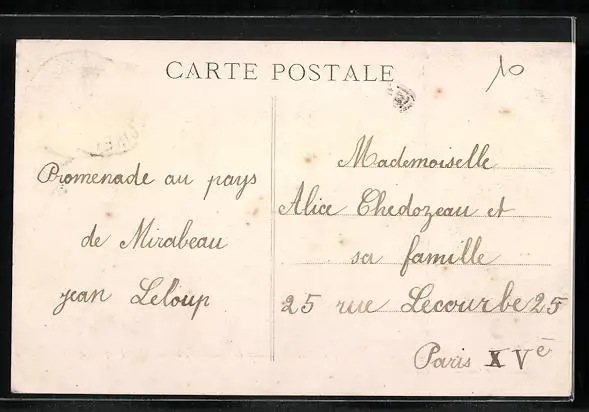 CARTE POSTALE
10
Promenade au pays
de Mirabeau
jean Leloup
Mademoiselle
Alice Chedozeau et
sa famille
25 rue Lecourbe 25
Paris XVè